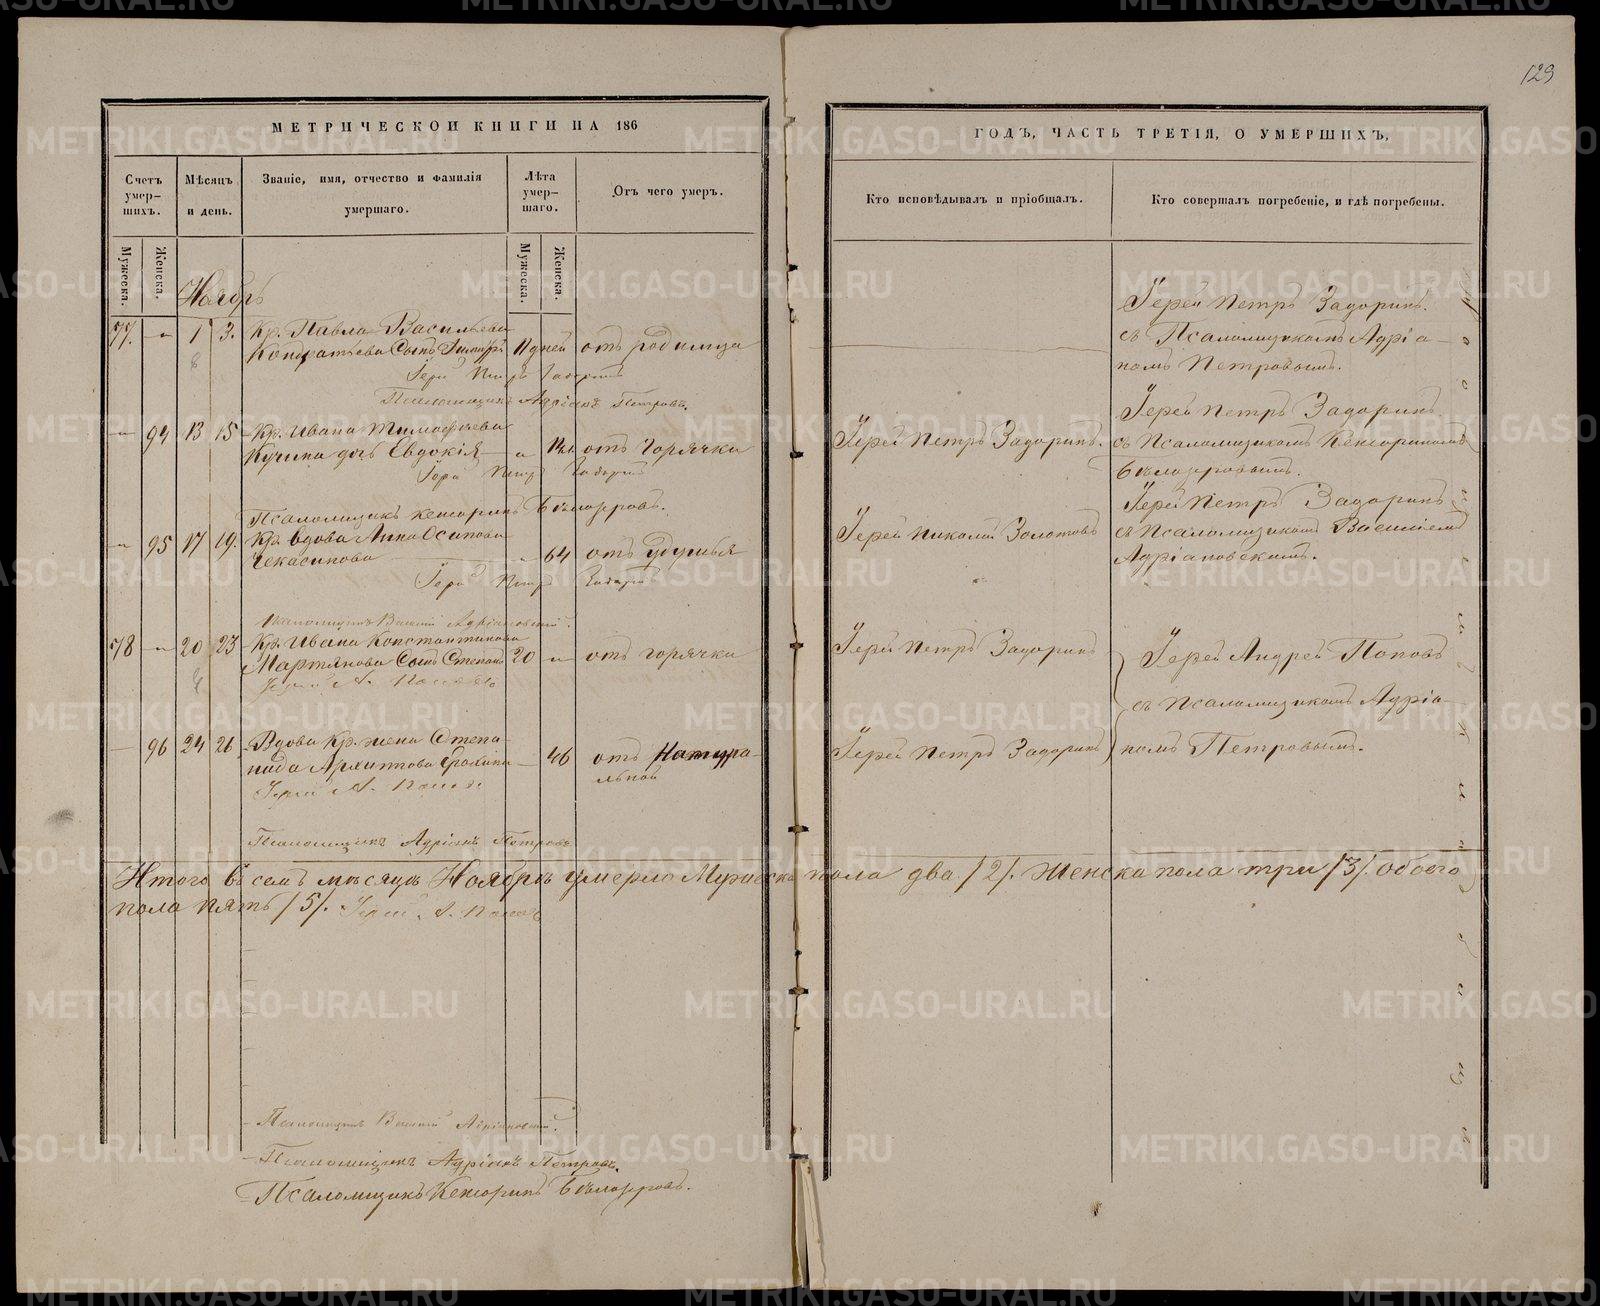 129
МЕТРИЧЕСКОЙ КНИГИ НА 186
ГОДЪ, ЧАСТЬ ТРЕТІЯ, О УМЕРШИХЪ.
Счетъ умер-
шихъ.
Мѣсяцъ
и день.
Званіе, имя, отчество и фамилія
умершаго.
Лѣта
умер-
шаго.
Отъ чего умеръ.
Кто исповѣдывалъ и пріобщалъ.
Кто совершалъ погребеніе, и гдѣ погребены.
Мужеска.
Женска.
Мужеска.
Женска.
Ноябрь
77. — 1 3. Кр. Павла Васильева
Кондратьева Сынъ 11 дней отъ родимца
Іерей Петръ Задоринъ
Псаломщикъ Адріанъ Петровъ.
Іерей Петръ Задоринъ.
съ Псаломщикомъ Адріа-
номъ Петровымъ.
94 13 15 Кр. Ивана Тимофеева
Кучина дочь Евдокія отъ горячки
Іерей Петръ Задоринъ
Псаломщикъ Кенсоринъ Бѣлозеровъ.
Іерей Петръ Задоринъ.
Іерей Петръ Задоринъ
съ Псаломщикомъ Кенсориномъ
Бѣлозеровымъ.
95 17 19. Кр. вдова Анна Осипова
Чекасинова 64 отъ удушья
Іерей Петръ Задоринъ
Псаломщикъ Василій Адріановскій.
Іерей Николай Золотовъ
Іерей Петръ Задоринъ
съ Псаломщикомъ Василіемъ
Адріановскимъ.
78 — 20 23 Кр. Ивана Константинова
Мартьянова Сынъ Степанъ 20 — отъ горячки
Іерей А. Поповъ
Іерей Петръ Задоринъ
Іерей Андрей Поповъ
съ Псаломщикомъ Адріа-
номъ Петровымъ.
— 96 24 26 Вдова Кр. жена Степа-
нида Архиппова — 46 отъ Натура-
льной
Іерей А. Поповъ
Псаломщикъ Адріанъ Петровъ
Іерей Петръ Задоринъ
Итого въ семъ мѣсяцѣ Ноябрѣ умерло Мужеска пола два /2/. Женска пола три /3/. обоего
пола пять /5/. Іерей А. Поповъ
Псаломщикъ Василій Адріановскій.
Псаломщикъ Адріанъ Петровъ.
Псаломщикъ Кенсоринъ Бѣлозеровъ.
METRIKI.GASO-URAL.RU